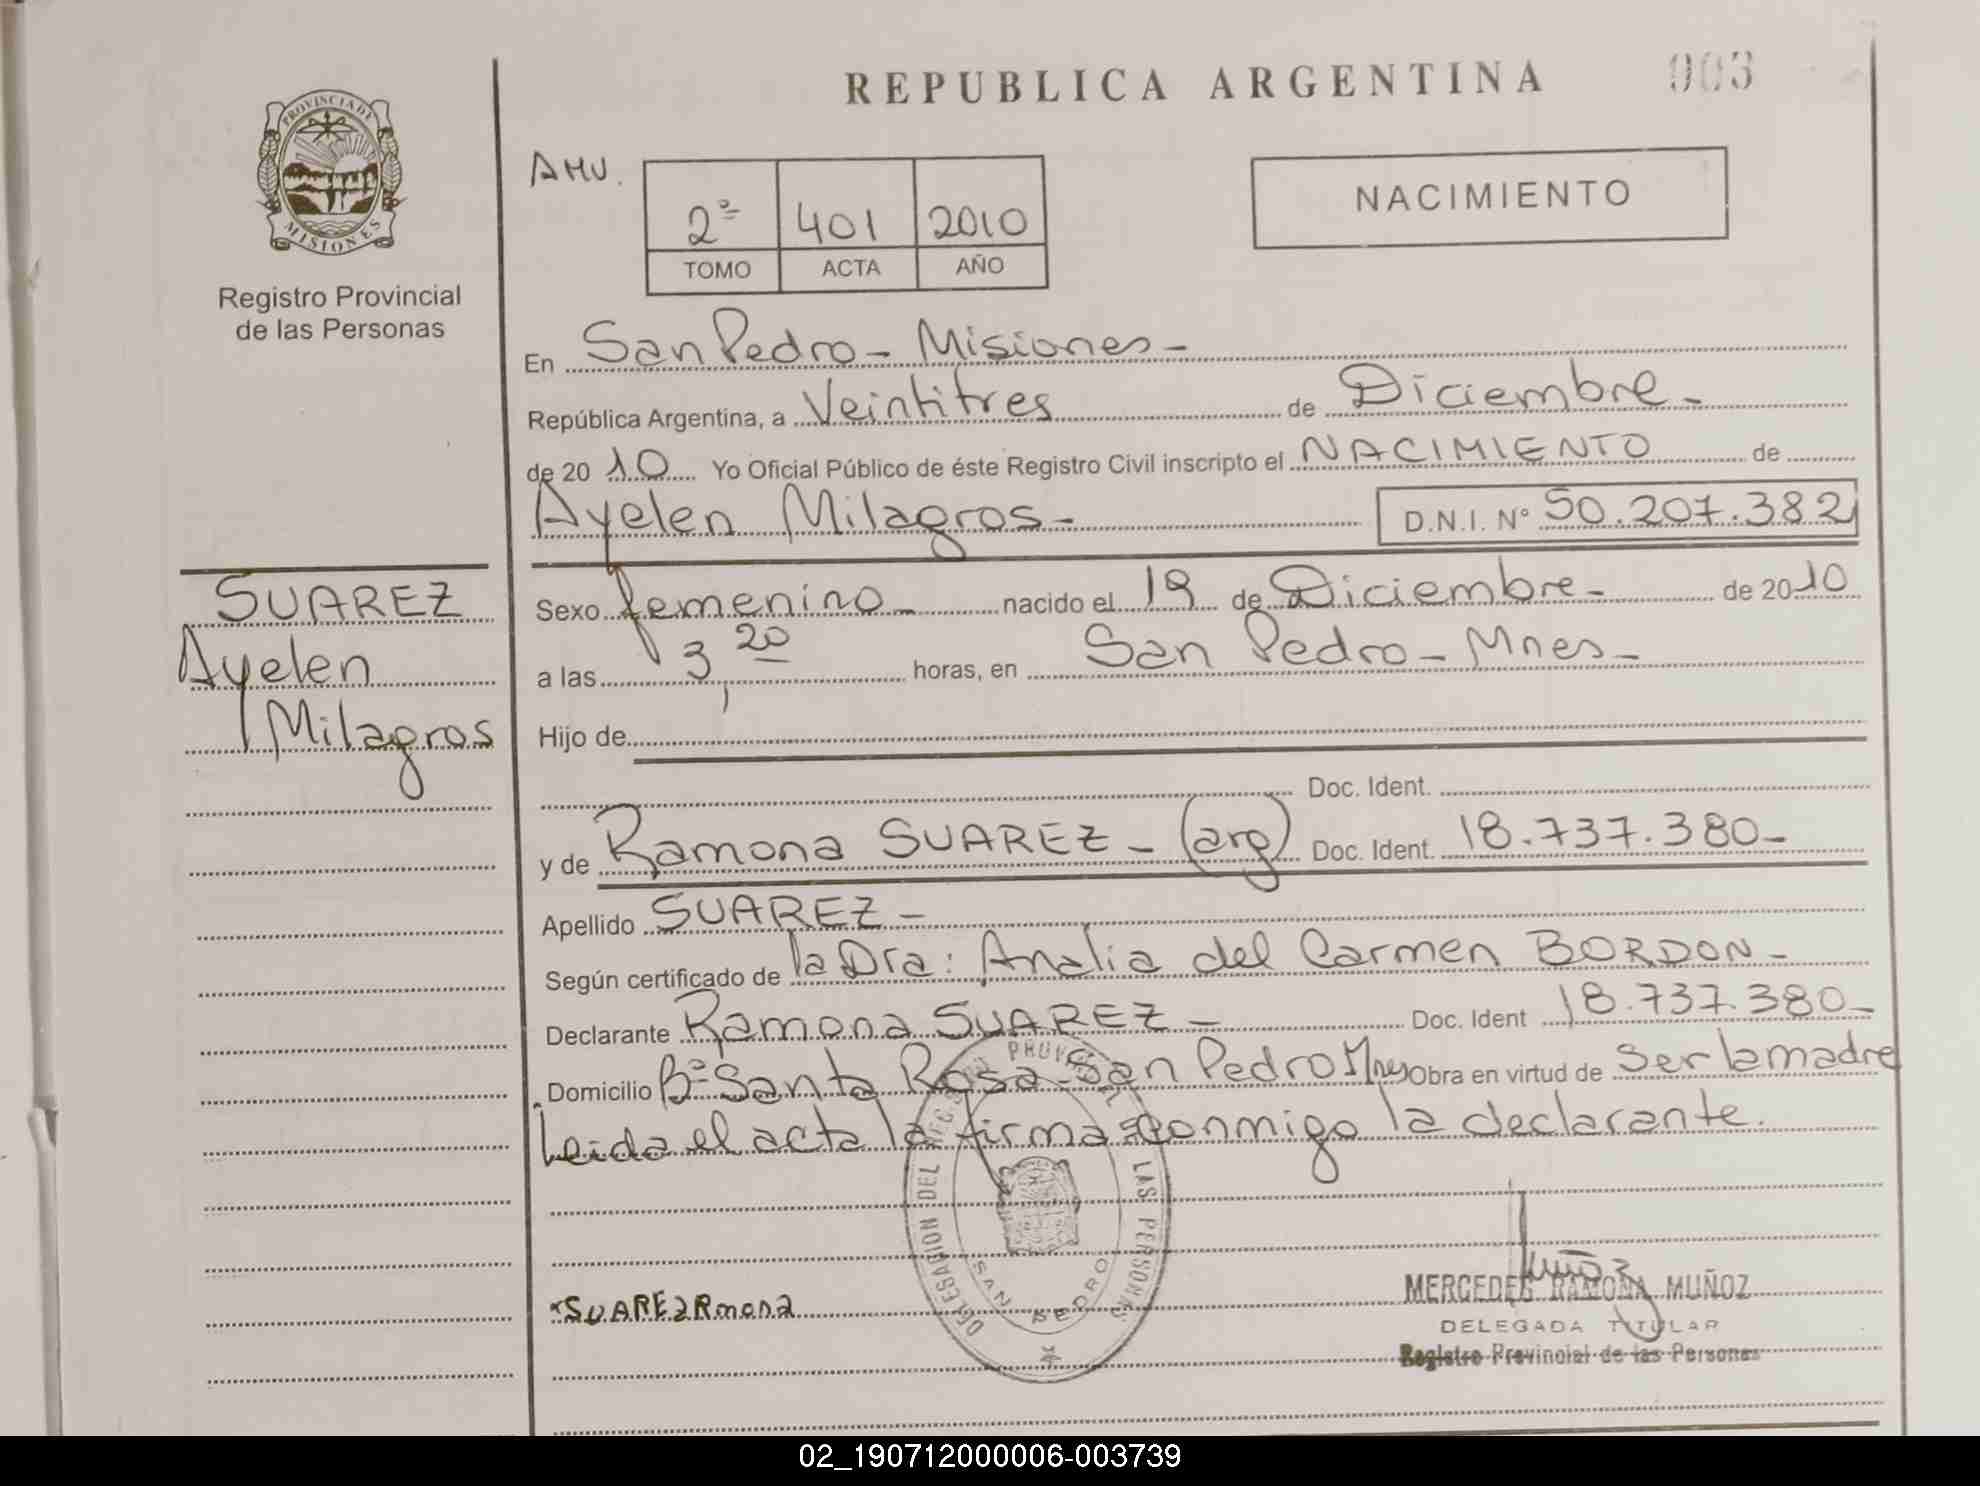 REPUBLICA ARGENTINA
003
PROVINCIA DE
MISIONES
Registro Provincial
de las Personas
AMU.
2º 401 2010
TOMO ACTA AÑO
NACIMIENTO
En San Pedro - Misiones -
República Argentina, a Veintitres de Diciembre -
de 20 10 Yo Oficial Público de éste Registro Civil inscripto el NACIMIENTO de
Ayelen Milagros - D.N.I. Nº 50.207.382
SUAREZ
Ayelen
Milagros
Sexo femenino - nacido el 19 de Diciembre - de 2010
a las 3,20 horas, en San Pedro - Mnes -
Hijo de
Doc. Ident.
y de Ramona SUAREZ - (arg) Doc. Ident. 18.737.380 -
Apellido SUAREZ -
Según certificado de la Dra: Analia del Carmen BORDON -
Declarante Ramona SUAREZ - Doc. Ident 18.737.380 -
Domicilio Bº Santa Rosa San Pedro Mnes Obra en virtud de ser la madre
Leida el acta la firma conmigo la declarante.
DELEGACION DEL REG. PROVINCIAL DE LAS PERSONAS
SAN PEDRO
SUAREZ Rmona
MERCEDES RAMONA MUÑOZ
DELEGADA TITULAR
Registro Provincial de las Personas
02_190712000006-003739